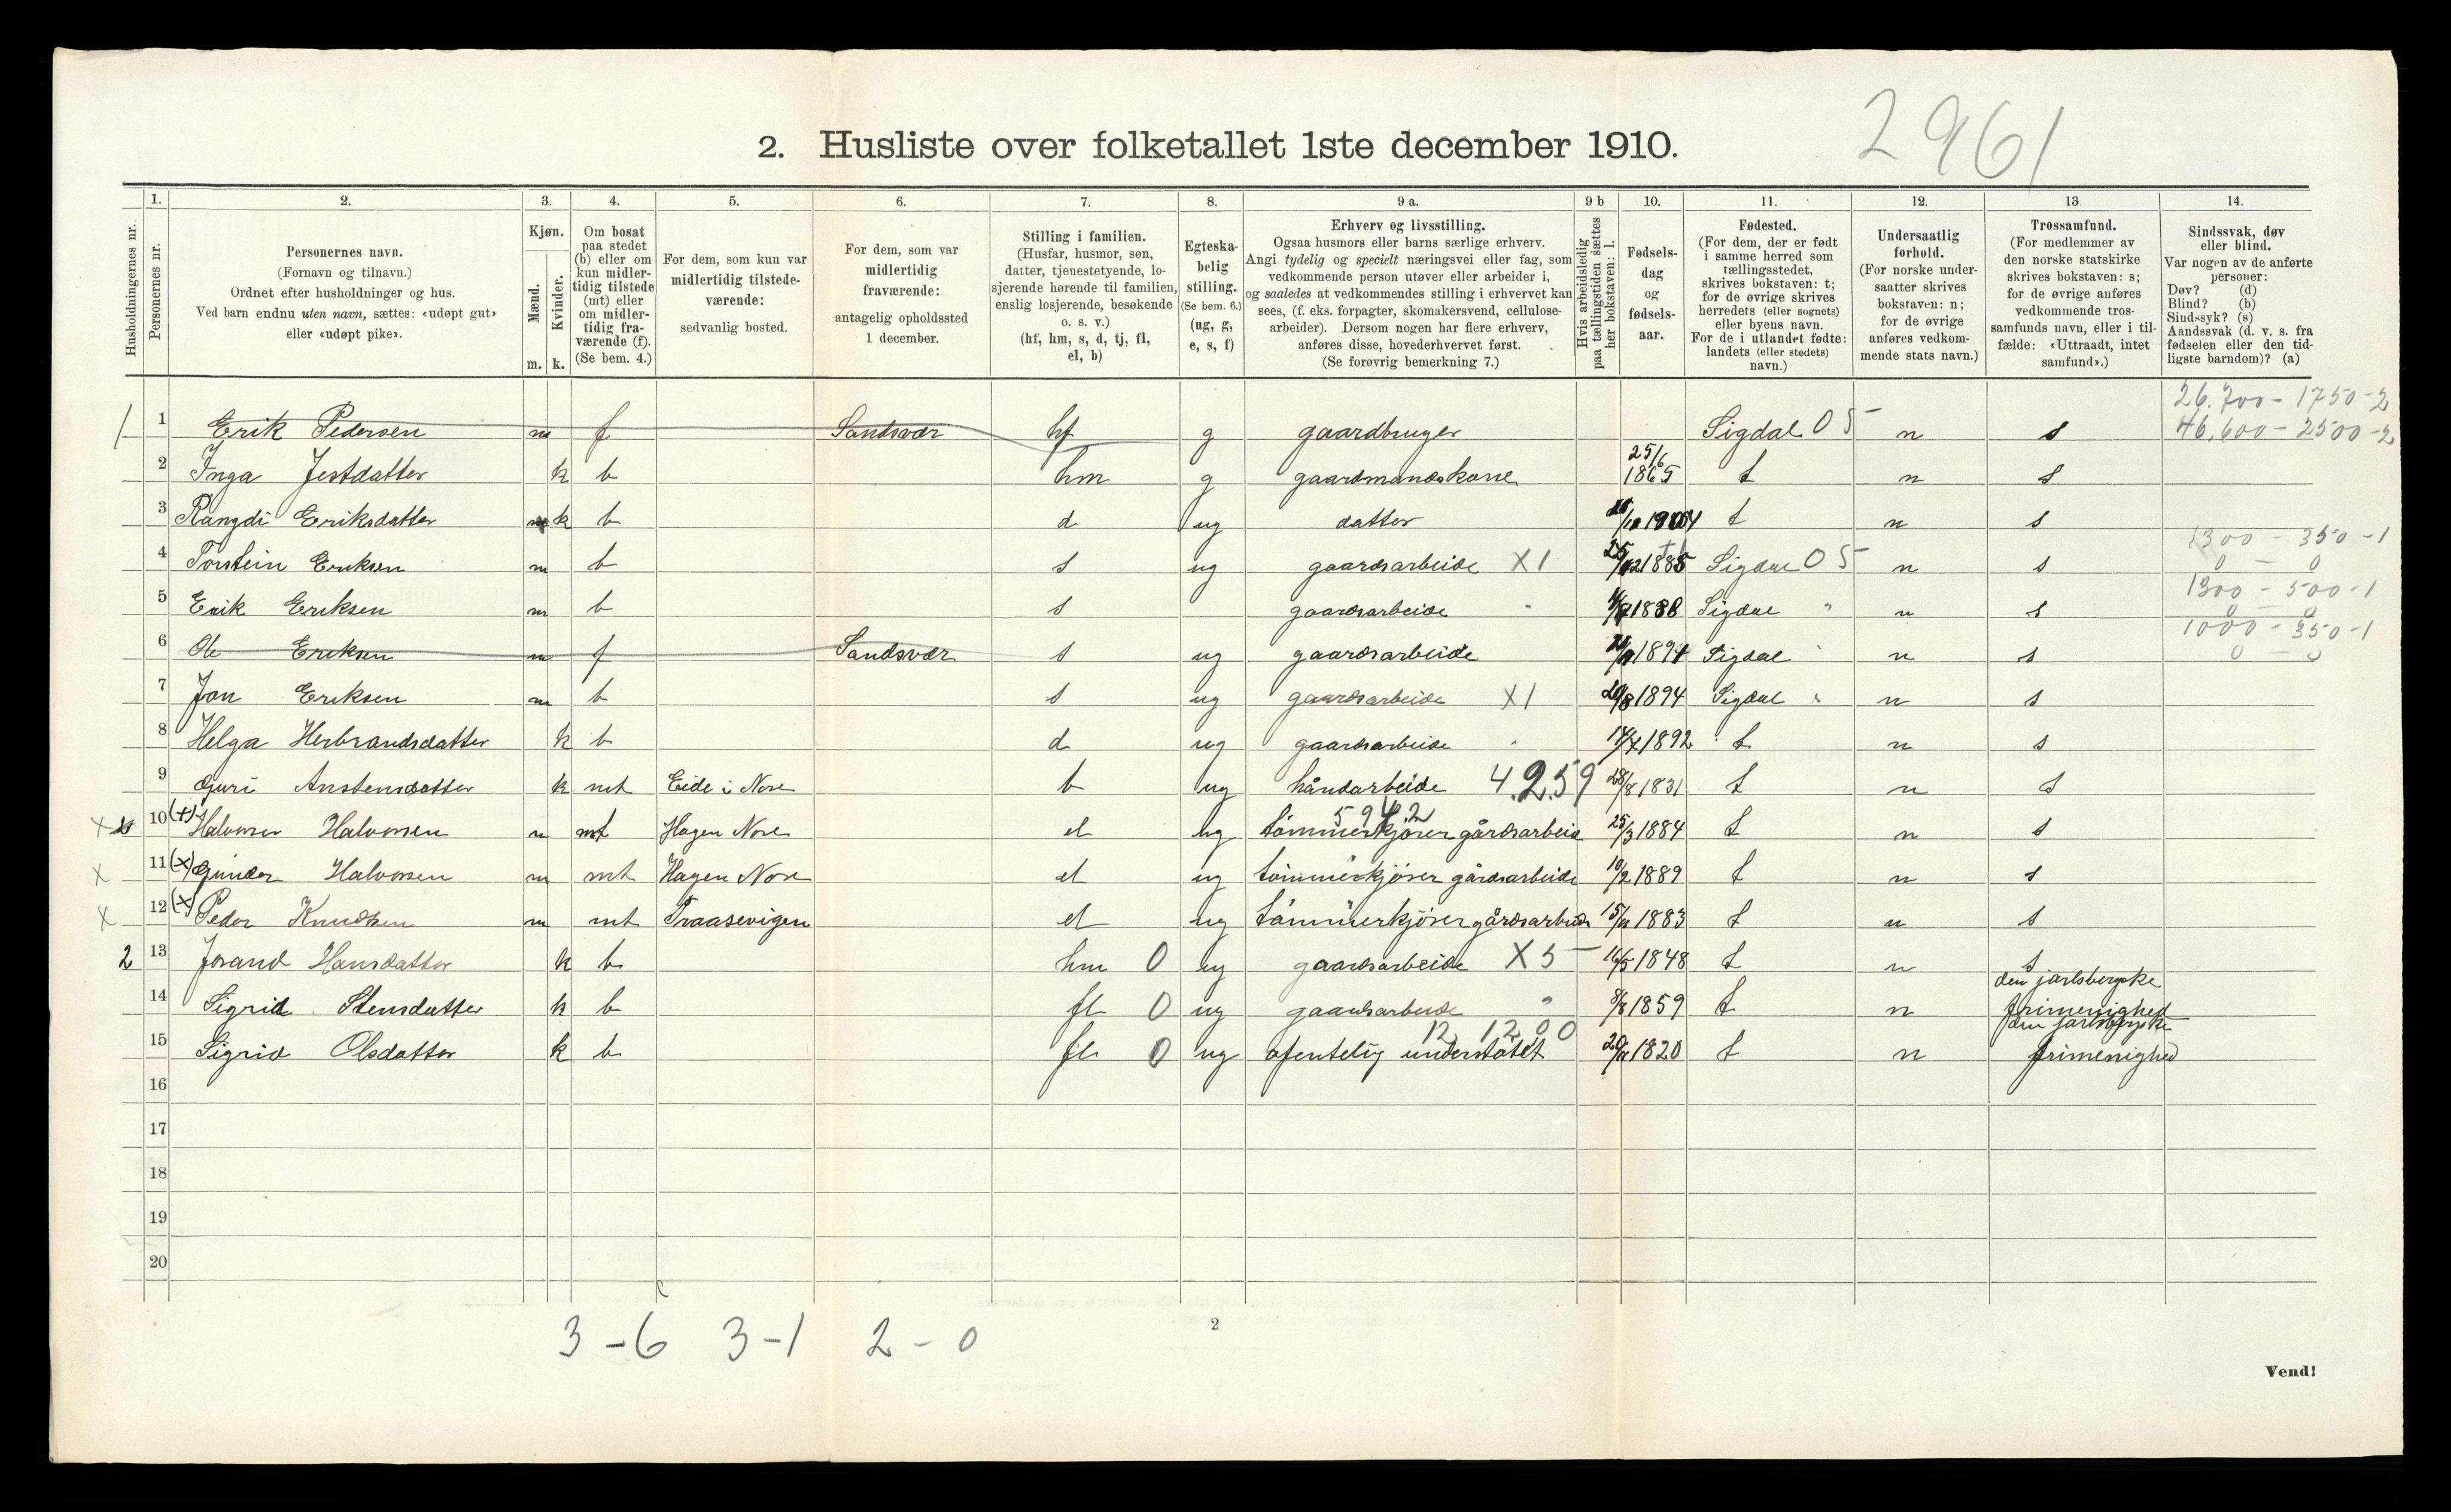 2961
2. Husliste over folketallet 1ste december 1910.
Husholdningernes nr.
1. Personernes nr.
2. Personernes navn.
(Fornavn og tilnavn.)
Ordnet efter husholdninger og hus.
Ved barn endnu uten navn, sættes: «udøpt gut»
eller «udøpt pike».
3. Kjøn.
Mænd. m.
Kvinder. k.
4. Om bosat
paa stedet
(b) eller om
kun midler-
tidig tilstede
(mt) eller
om midler-
tidig fra-
værende (f).
(Se bem. 4.)
5. For dem, som kun var
midlertidig tilstede-
værende:
sedvanlig bosted.
6. For dem, som var
midlertidig
fraværende:
antagelig opholdssted
1 december.
7. Stilling i familien.
(Husfar, husmor, søn,
datter, tjenestetyende, lo-
sjerende hørende til familien,
enslig losjerende, besøkende
o. s. v.)
(hf, hm, s, d, tj, fl,
el, b)
8. Egteska-
belig
stilling.
(Se bem. 6.)
(ug, g,
e, s, f)
9 a. Erhverv og livsstilling.
Ogsaa husmors eller barns særlige erhverv.
Angi tydelig og specielt næringsvei eller fag, som
vedkommende person utøver eller arbeider i,
og saaledes at vedkommendes stilling i erhvervet kan
sees, (f. eks. forpagter, skomakersvend, cellulose-
arbeider). Dersom nogen har flere erhverv,
anføres disse, hovederhvervet først.
(Se forøvrig bemerkning 7.)
9 b Hvis arbeidsledig
paa tællingstiden sættes
her bokstaven: l.
10. Fødsels-
dag
og
fødsels-
aar.
11. Fødested.
(For dem, der er født
i samme herred som
tællingsstedet,
skrives bokstaven: t;
for de øvrige skrives
herredets (eller sognets)
eller byens navn.
For de i utlandet fødte:
landets (eller stedets)
navn.)
12. Undersaatlig
forhold.
(For norske under-
saatter skrives
bokstaven: n;
for de øvrige
anføres vedkom-
mende stats navn.)
13 Trossamfund.
(For medlemmer av
den norske statskirke
skrives bokstaven: s;
for de øvrige anføres
vedkommende tros-
samfunds navn, eller i til-
fælde: «Uttraadt, intet
samfund».)
14. Sindssvak, døv
eller blind.
Var nogen av de anførte
personer:
Døv? (d)
Blind? (b)
Sindssyk? (s)
Aandssvak (d. v. s. fra
fødselen eller den tid-
ligste barndom)? (a)
26.700 - 1750-2
1 1 Erik Pedersen m f Sandsvær hf g gaardbruger Sigdal 05 n s 46,600 - 2500-2
2 Inga Jestdatter k b hm g gaardmandskone 25/6 1865 t n s
3 Rangdi Eriksdatter k b d ug datter t n s
1300 - 350 -1
4 Torstein Eriksen m b s ug gaardsarbeide X1 Sigdal 05 n s 0 - 0
1300 - 500 -1
5 Erik Eriksen m b s gaardsarbeide " 1888 Sigdal " n s 0 0
1000 - 350 -1
6 Ole Eriksen m f Sandsvær s ug gaardsarbeide Sigdal " n s 0 - 0
7 Jon Eriksen m b s ug gaardsarbeide X1 20/8 1894 Sigdal " n s
8 Helga Herbrandsdatter k b d ug gaardsarbeide " 1892 t n s
9 Guri Anstensdatter k mt Eide i Nore b ug håndarbeide 4.2.59 28/8 1831 t n s
5942
X 10 (+) Halvor Halvorsen m mt Hagen Nore el ug tømmerkjører gårdsarbeid 25/3 1884 t n s
X 11 (X) Gunder Halvorsen m mt Hagen Nore el ug tømmerkjører gårdsarbeide 10/2 1889 t n s
X 12 (X) Peder Knudsen m mt Traasevigen el ug tømmerkjører gårdsarbeide 15/11 1883 t n s
2 13 Jorand Hansdatter k b hm 0 ug gaardsarbeide X5 16/5 1848 t n s
den jarlsbergske
14 Sigrid Stensdatter k b fl 0 ug gaardsarbeide " 8/8 1859 t n frimenighed
12,1200 den jarlsbergske
15 Sigrid Olsdatter k b fl 0 ug ofentelig understøtet 20/11 1820 t n frimenighed
16
17
18
19
20
3-6 3-1 2-0
2
Vend!